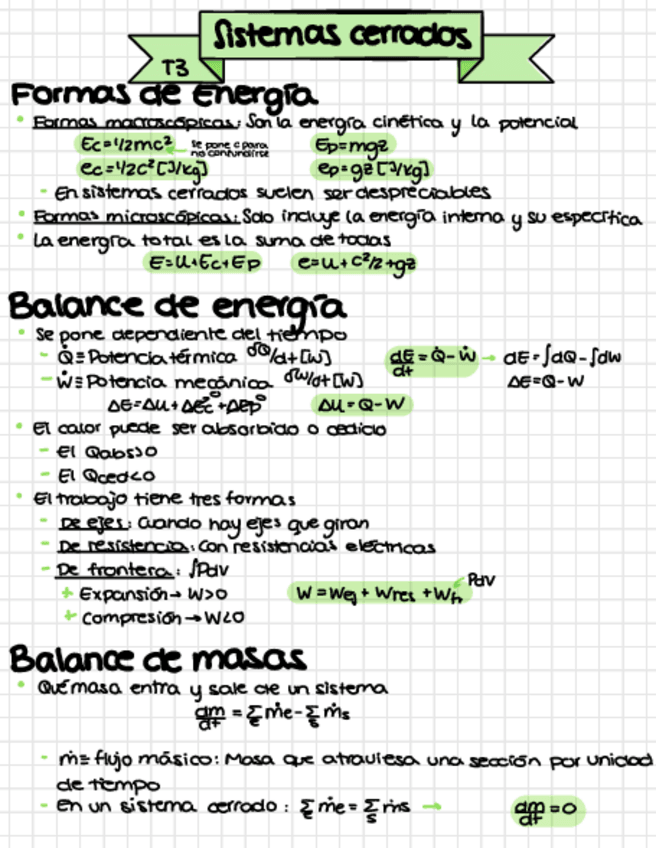 Sistemas cerrados
T3
Formas de Energía
• Formas macroscópicas: Son la energía cinética y la potencial
Ec=1/2mc² ← se pone c para no confundirse Ep=mgz
ec=1/2c² [J/kg] ep=gz [J/kg]
- En sistemas cerrados suelen ser despreciables
• Formas microscópicas: Solo incluye la energía interna y su específica
• La energía total es la suma de todas
E=U+Ec+Ep e=u+c²/2+gz
Balance de energía
• Se pone dependiente del tiempo
- Q̇≡Potencia térmica δQ/dt [W] dE/dt = Q̇-Ẇ → dE=∫dQ-∫dW
- Ẇ≡Potencia mecánica δW/dt [W] ΔE=Q-W
ΔE=ΔU+ΔEc⁰+ΔEp⁰ ΔU=Q-W
• El calor puede ser absorbido o cedido
- El Qabs>0
- El Qced<0
• El trabajo tiene tres formas
- De ejes: Cuando hay ejes que giran
- De resistencia: Con resistencias eléctricas
- De frontera: ∫Pdv
+ Expansión → W>0 W=Wej+Wres+Wfr ← Pdv
+ Compresión → W<0
Balance de masas
• Qué masa entra y sale de un sistema
dm/dt = Σe ṁe - Σs ṁs
- ṁ≡ flujo másico: Masa que atraviesa una sección por unidad
de tiempo
- En un sistema cerrado: Σe ṁe = Σs ṁs → dm/dt = 0